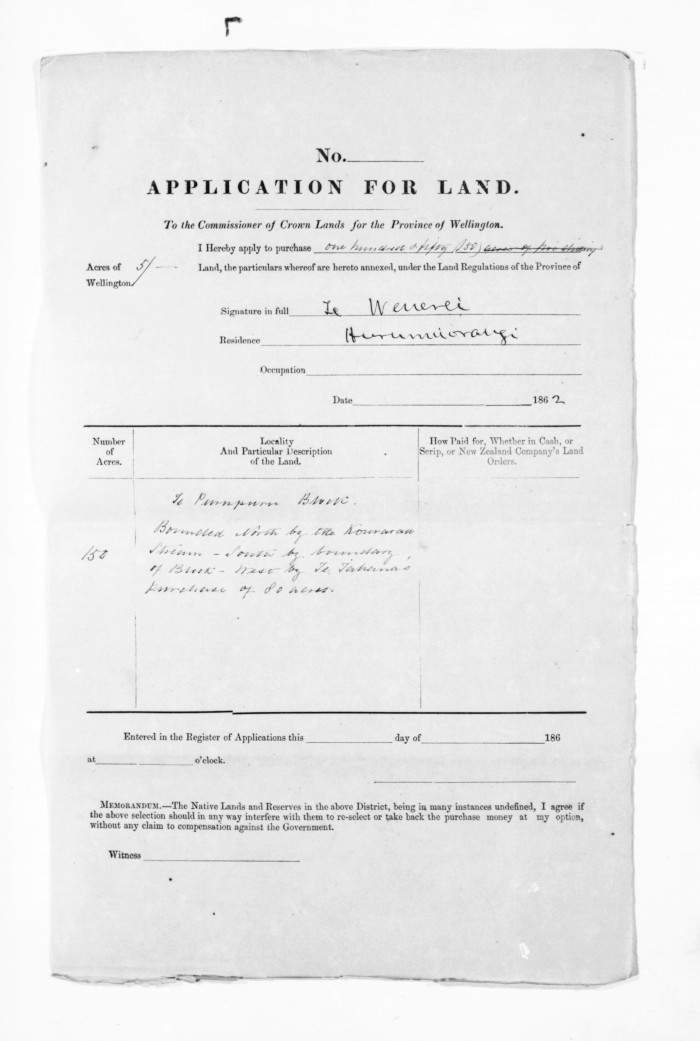 No.
APPLICATION FOR LAND.
To the Commissioner of Crown Lands for the Province of Wellington.
I Hereby apply to purchase one hundred & fifty (150) acres of
Acres of 5/- Land, the particulars whereof are hereto annexed, under the Land Regulations of the Province of
Wellington
Signature in full Te
Residence
Occupation
Date 1862
Number of Acres.
Locality And Particular Description of the Land.
How Paid for, Whether in Cash, or Scrip, or New Zealand Company's Land Orders.
Te Purupuru Block.
Bounded North by the Kourarau
150 Stream - South by boundary
of Block - West by Te
purchase of 80 acres.
Entered in the Register of Applications this day of 186
at o'clock.
MEMORANDUM.—The Native Lands and Reserves in the above District, being in many instances undefined, I agree if
the above selection should in any way interfere with them to re-select or take back the purchase money at my option,
without any claim to compensation against the Government.
Witness